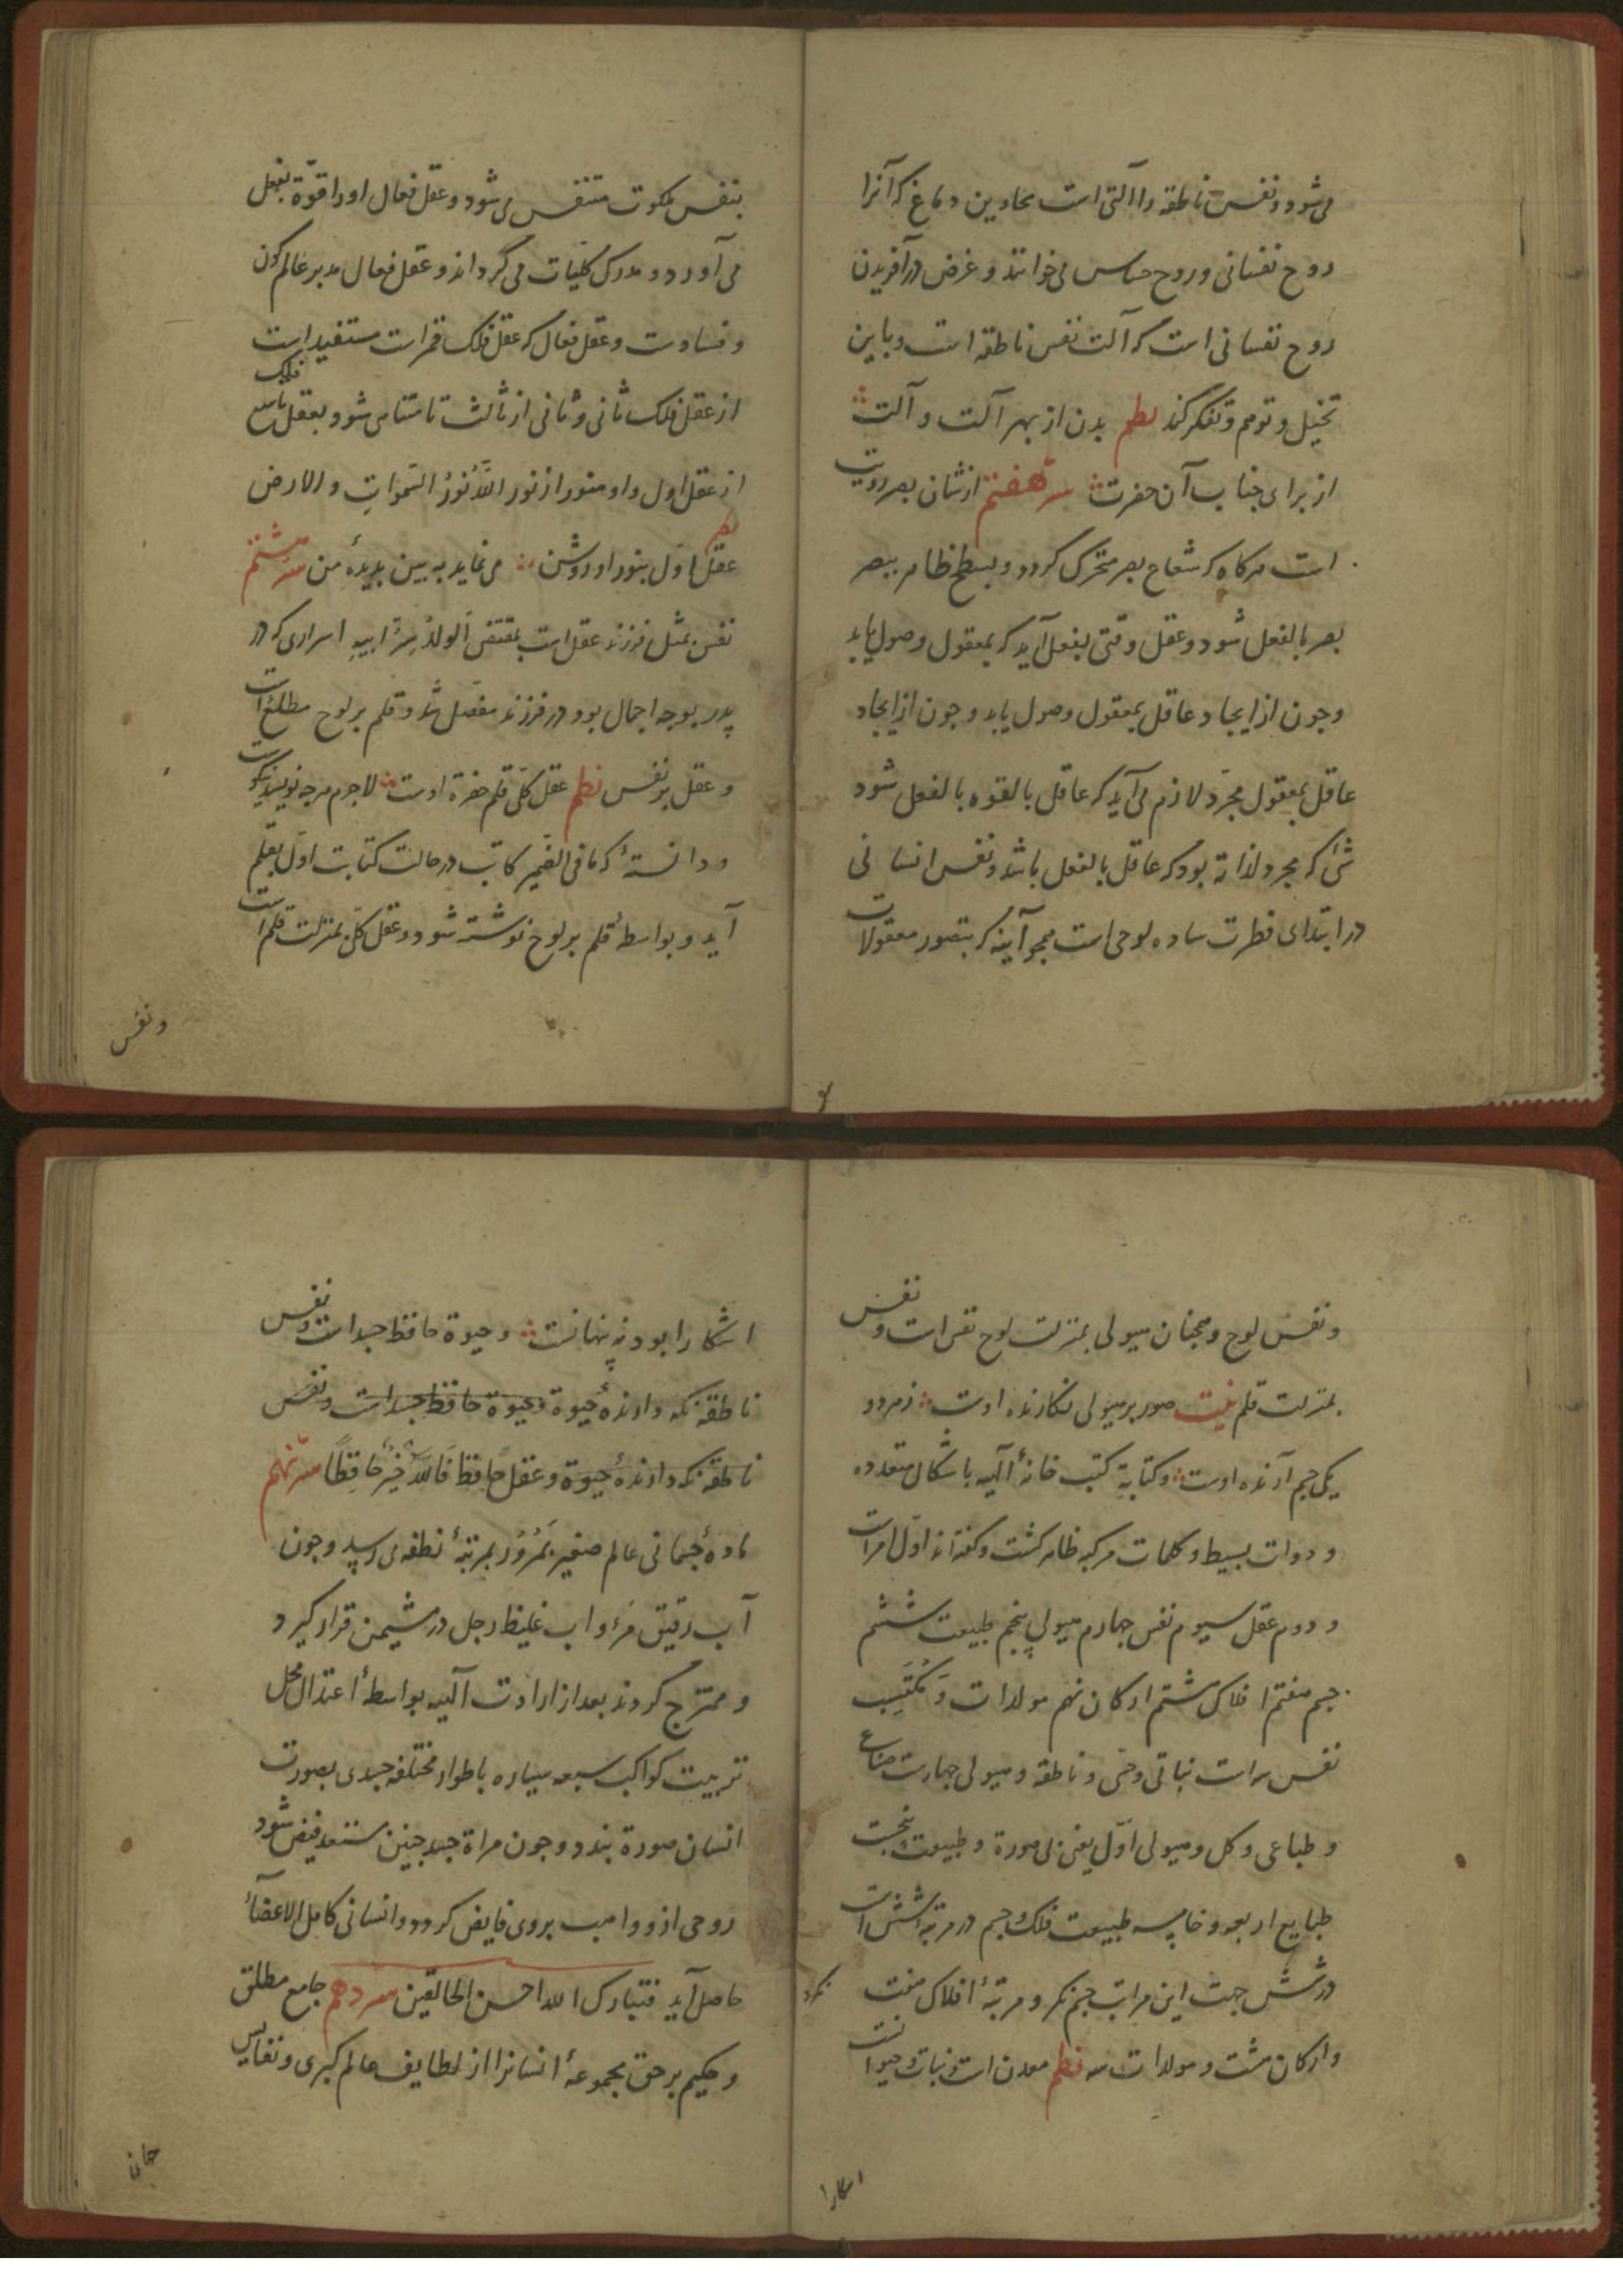 می‌شود و نفس ناطقه را آلتی است بخاوین دماغ که آنرا
روح نفسانی و روح حساس می‌خوانند و غرض در آفریدن
روح نفسانی است که آلت نفس ناطقه است و باین
تخیل و توهم و تفکر کند نظم بدن از بهر آلت و آلت
از برای جناب آن حضرت سر هفتم از شان بصر رویت
است هرکاه که شعاع بصر متحرک کردد و بسطح ظاهر ببصر
بصر بالفعل شود و عقل وقتی بفعل آید که بمعقول وصول یابد
و چون از ایجاد عاقل بمعقول وصول یابد و چون از ایجاد
عاقل بمعقول مجرد لازم می‌آید که عاقل بالقوه بالفعل شود
شئ که مجرد لذاته بود که عاقل بالفعل باشد و نفس انسانی
در ابتدای فطرت ساده لوحی است همچو آینه که بتصور معقولات
بنفس ملکوت متنفس می‌شود و عقل فعال او را از قوّة بفعل
می‌آورد و مدرک کلیات می‌گرداند و عقل فعال مدبر عالم کون
و فسادست و عقل فعال که عقل فلک قمر است مستفید است
از عقل فلک ثانی و ثانی از ثالث تا متناهی شود بعقل فلک تاسع
از عقل اول و او منور از نور اللهُ نُورُ السَّمواتِ والارض
نظم عقل اوّل بنور او روشن می‌نماید به بین بدیدهٔ من سر هشتم
نفس بمثل فرزند عقل است بمقتضی الولدُ سِرُّ ابیهِ اسراری که در
پدر بوجه اجمال بود در فرزند مفصّل شد و قلم بر لوح مطلع است
و عقل بر نفس نظم عقل کلّی قلم حضرة اوست لاجرم هرچه نویسد نیکوست
و دانستهٔ که مافی الضّمیر کاتب در حالت کتابت اوّل بقلم
آید و بواسطهٔ قلم بر لوح نوشته شود و عقل کلّی بمنزلت قلم است
و نفس
و نفس لوح و همچنان هیولی بمنزلت لوح نفس است و نفس
بمنزلت قلم بیت صور بر هیولی نکارنده اوست ز هر دو
یکی جسم آرنده اوست و کتابة کتب خانهٔ آلهیه باشکال متعدده
و دوات بسیط و کلمات مرکبه ظاهر کشت و کفته‌اند اوّل امر است
و دوم عقل سیوم نفس چهارم هیولی پنجم طبیعت ششم
جسم هفتم افلاک هشتم ارکان نهم مولدات و مُکتَسِب
نفس سه است نباتی و حسّی و ناطقه و هیولی چهارست صناعی
و طباعی و کل و هیولی اوّل یعنی بی صورة و طبیعت پنجست
طبایع اربعه و خامسه طبیعت فلک و جسم در مرتبه شش است
در شش جهت این مراتب جسم نکر و مرتبهٔ افلاک هفت
نکرد
و ارکان هشت و مولدات سه نظم معدن است و نبات و حیوانست
اشکارا
اشکارا بود نه پنهانست و حیوة حافظ جسد است و نفس
ناطقه نکه دارندهٔ حیوة و حیوة حافظ جسد است و نفس
ناطقه نکه دارندهٔ حیوة و عقل حافظ فَاللهُ خَیرٌ حَافِظًا سر نهم
مادهٔ جسمانی عالم صغیر بمُرُور بمرتبهٔ نطفه می رسید و چون
آب رقیق مَرء و اب غلیظ رجل در مشیمن قرار گیرد
و ممتزج کردند بعد از ارادت آلهیه بواسطهٔ اعتدال محل
تربیت کواکب سبعه سیاره باطوار مختلفه جسدی بصورت
انسان صورة بندد و چون مراة جسد چنین مستعد فیض شود
روحی از وواهب بروی فایض کردد و انسانی کامل الاعضاء
حاصل آید فتبارک الله احسن الخالقین سر دهم جامع مطلق
و حکیم بر حق مجموعهٔ انسانرا از لطایف عالم کبری و نفایس